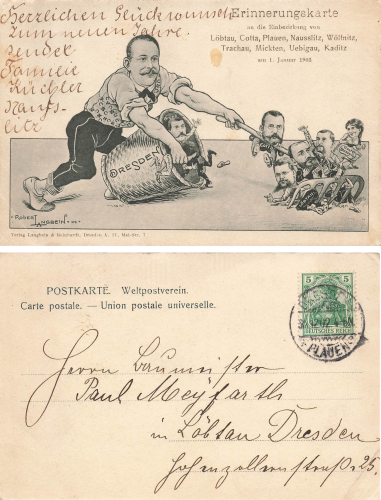 Herzlichen Glückwunsch
zum neuen Jahre
sendet
Familie
Küchler
Nauss-
litz
Erinnerungskarte
an die Einbeziehung von
Löbtau, Cotta, Plauen, Nausslitz, Wölfnitz,
Trachau, Mickten, Uebigau, Kaditz
am 1. Januar 1903
DRESDEN
ROBERT
LANGBEIN
Verlag Langbein & Reinhardt, Dresden A. 21,
POSTKARTE. Weltpostverein.
Carte postale. — Union postale universelle.
5 5
DEUTSCHES REICH
31.12.02
PLAUEN
Herrn Baumeister
Paul Meyfarth
in Löbtau Dresden
Hohenzollernstraße 25.